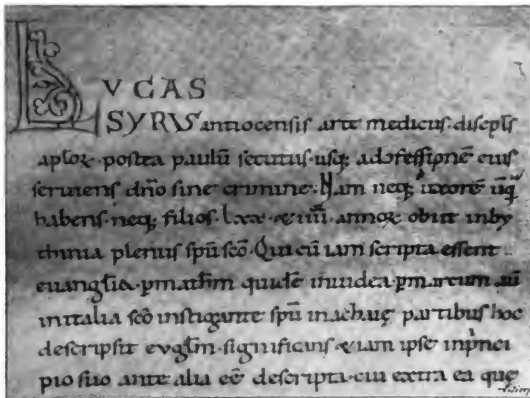 LVCAS
SYRUS antiocensis arte medicus. discipls
aploꝝ. postea paulū secutus. usq; ad ꝯfessionē eius
seruiens dño sine crimine. Nam neq; uxorē ūq̄
habens. neq; filios. Lxx. & iiii. annoꝝ obiit in by
thinia plenus spū scō. Qui cū iam scripta essent
euanglia. p matħm quidē in iudea. p marcum aū
in italia. scō instigante spū in achaiȩ partibus hoc
descripsit evglm. significans etiam ipse in pnci
pio suo ante alia eē descripta. cui extra ea que